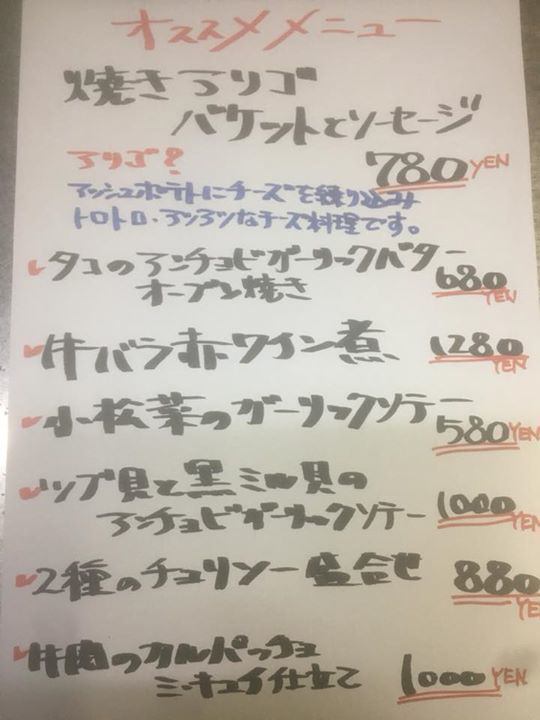 オススメメニュー
焼きアリゴ
バケットとソーセージ
アリゴ?
780YEN
マッシュポテトにチーズを練り込み
トロトロ・アツアツなチーズ料理です。
タコのアンチョビガーリックバター
オーブン焼き
680YEN
牛バラ赤ワイン煮 1280YEN
小松菜のガーリックソテー 580YEN
ツブ貝と黒ミル貝の
アンチョビガーリックソテー 1000YEN
2種のチョリソー盛合せ 880YEN
牛肉のカルパッチョ
ミ・キュイ仕立て 1000YEN